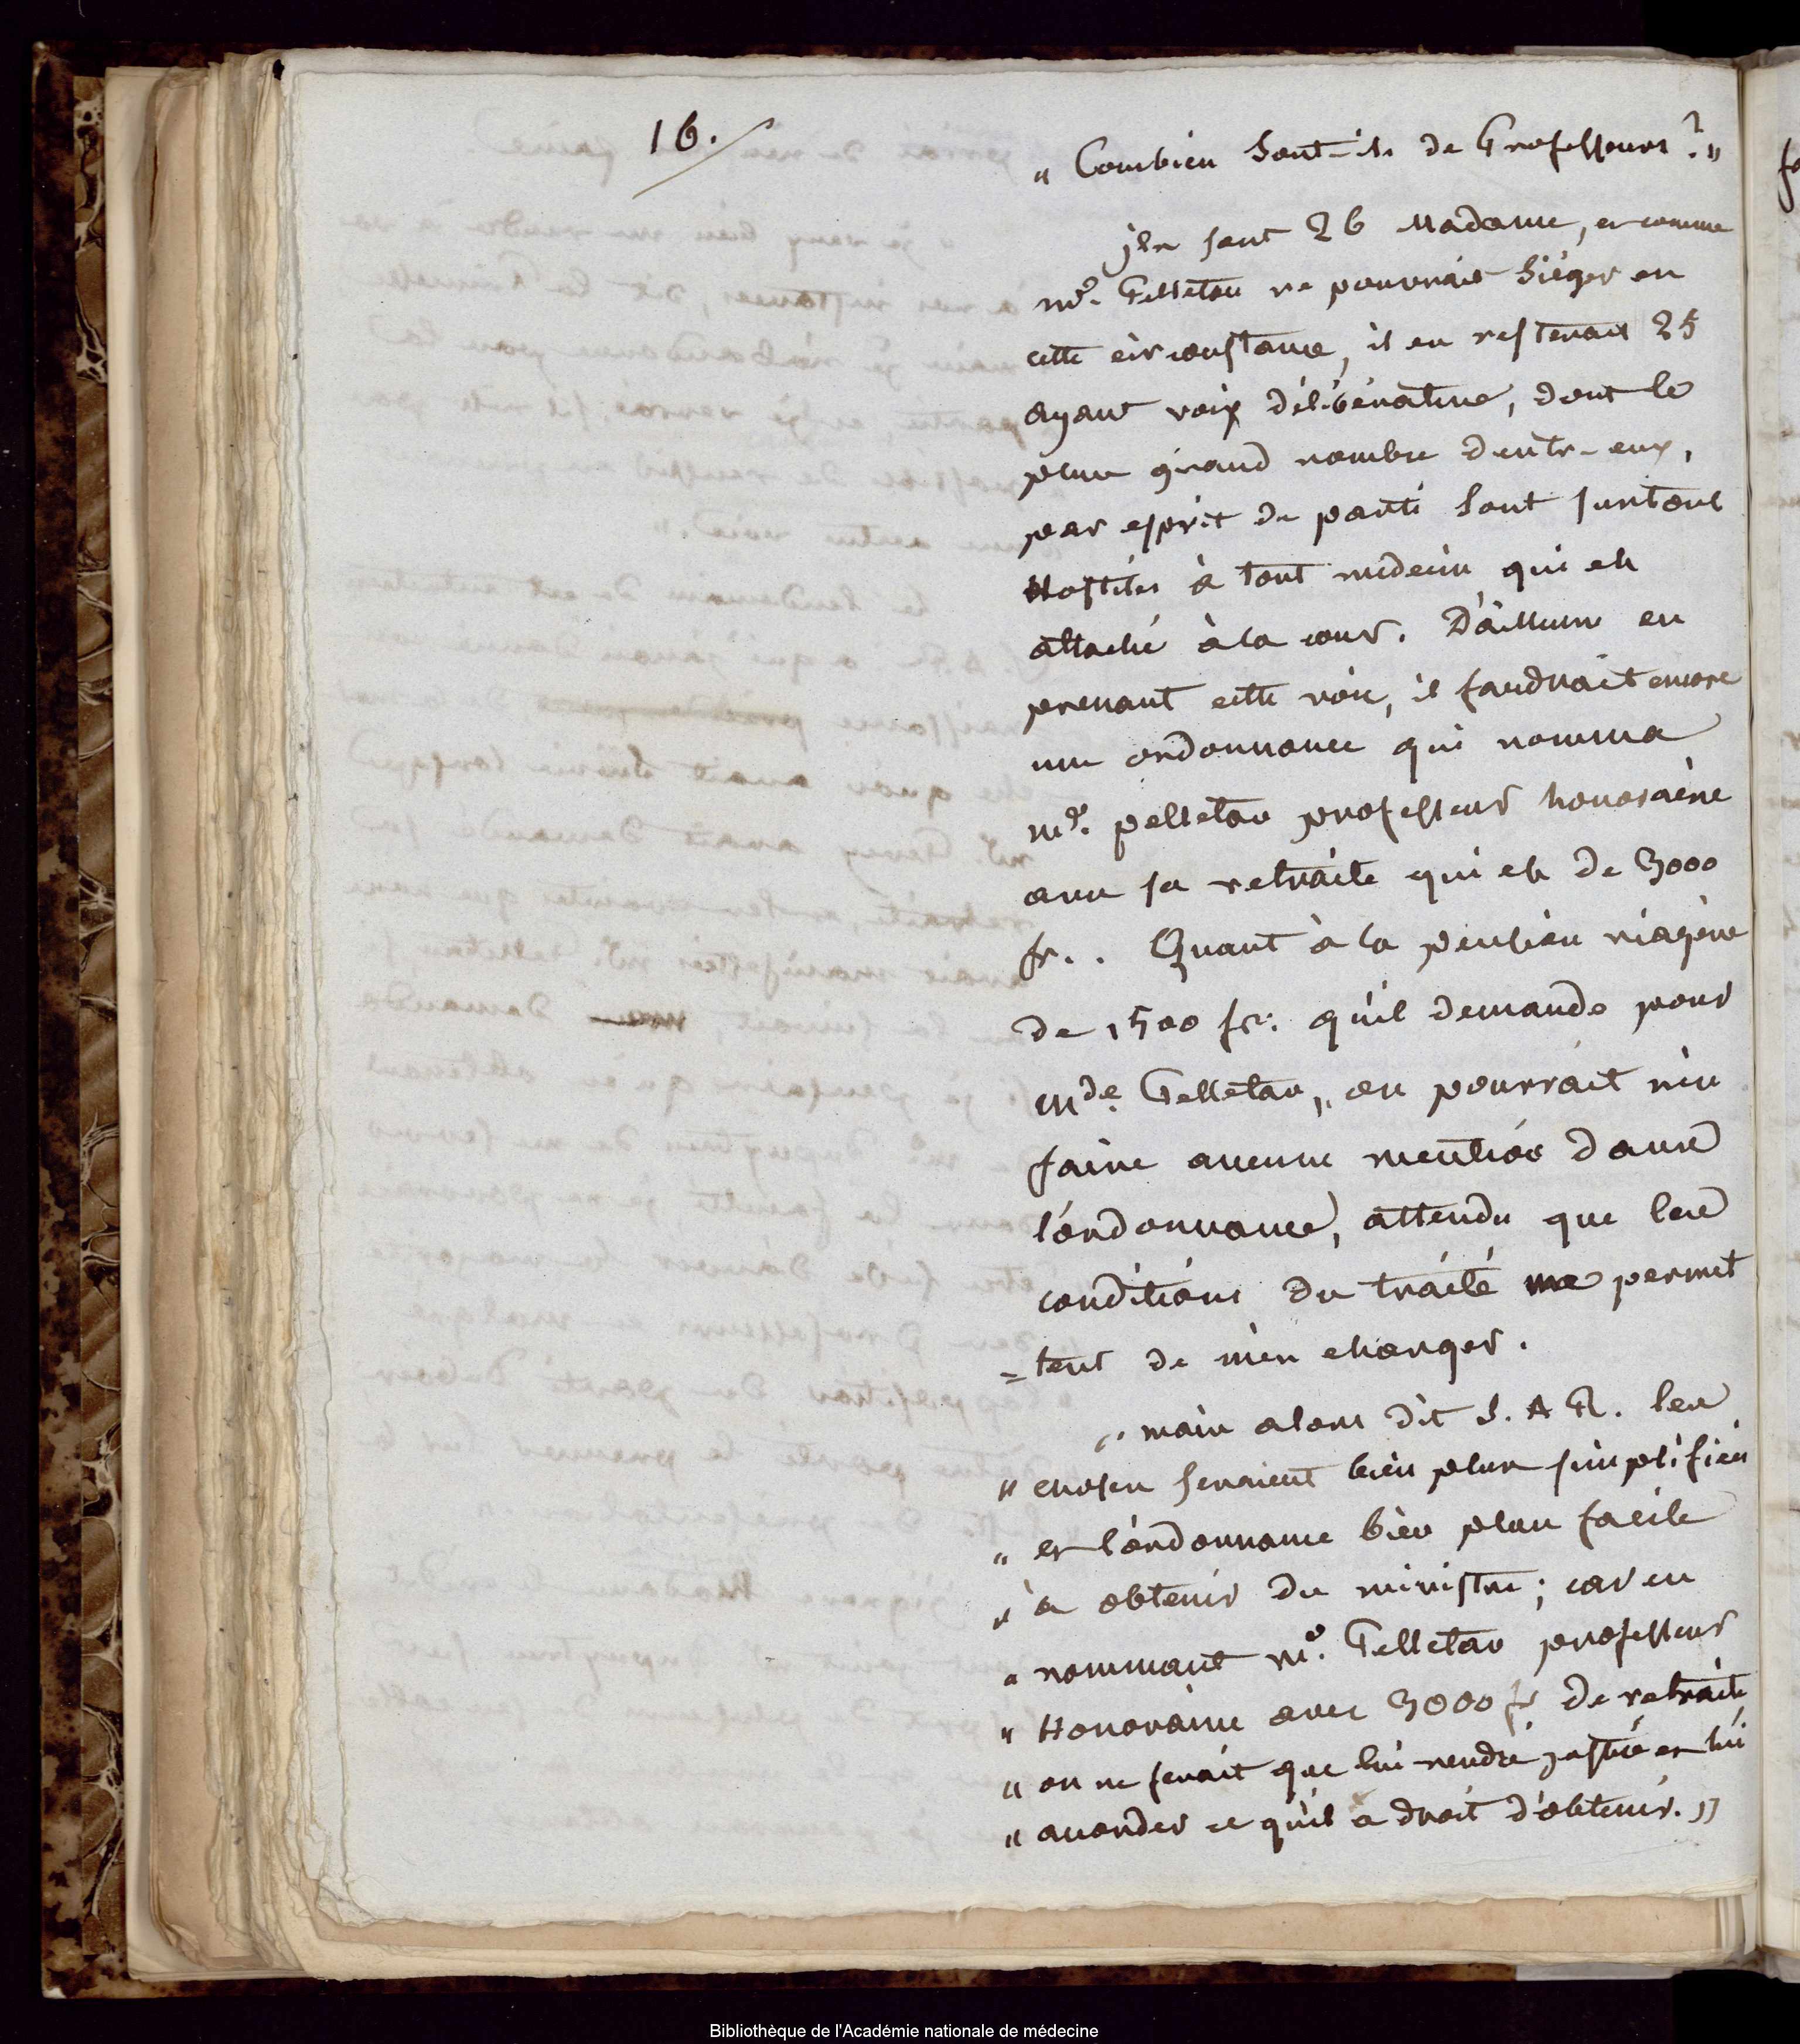 16.
„ Combien sont-ils de Professeurs? „
ils sont 26 Madame, et comme
mr. Pelletan ne pourrait siéger en
cette circonstance, il en restenait 25
ayant voix délibérative, dont le
plus grand nombre d'entr-eux,
par esprit de parti sont surtout
Hostiles à tout médecin qui est
attaché à la cour. D'ailleurs en
prenant cette voie, il faudrait encore
une ordonnance qui nomma
mr. pelletan professeur honoraire
avec sa retraite qui est de 3000
fr.. Quant à la pension viagère
de 1500 fr. qu'il demande pour
mde. Pelletan, on pourrait n'en
faire aucune mention dans
l'ordonnance, attendu que les
conditions du traité me permet
=tent de m'en charger.
„ mais alors dit S. A R. les
„ choses seraient bien plus simplifiées
„ et l'ordonnance bien plus facile
„ à obtenir du ministre; car en
„ nommant mr. Pelletan professeur
„ Honoraire avec 3000 fr de retraite
„ on ne serait que lui rendre justice et lui
„ accorder ce qu'il a droit d'obtenir. „
Bibliothèque de l'Académie nationale de médecine